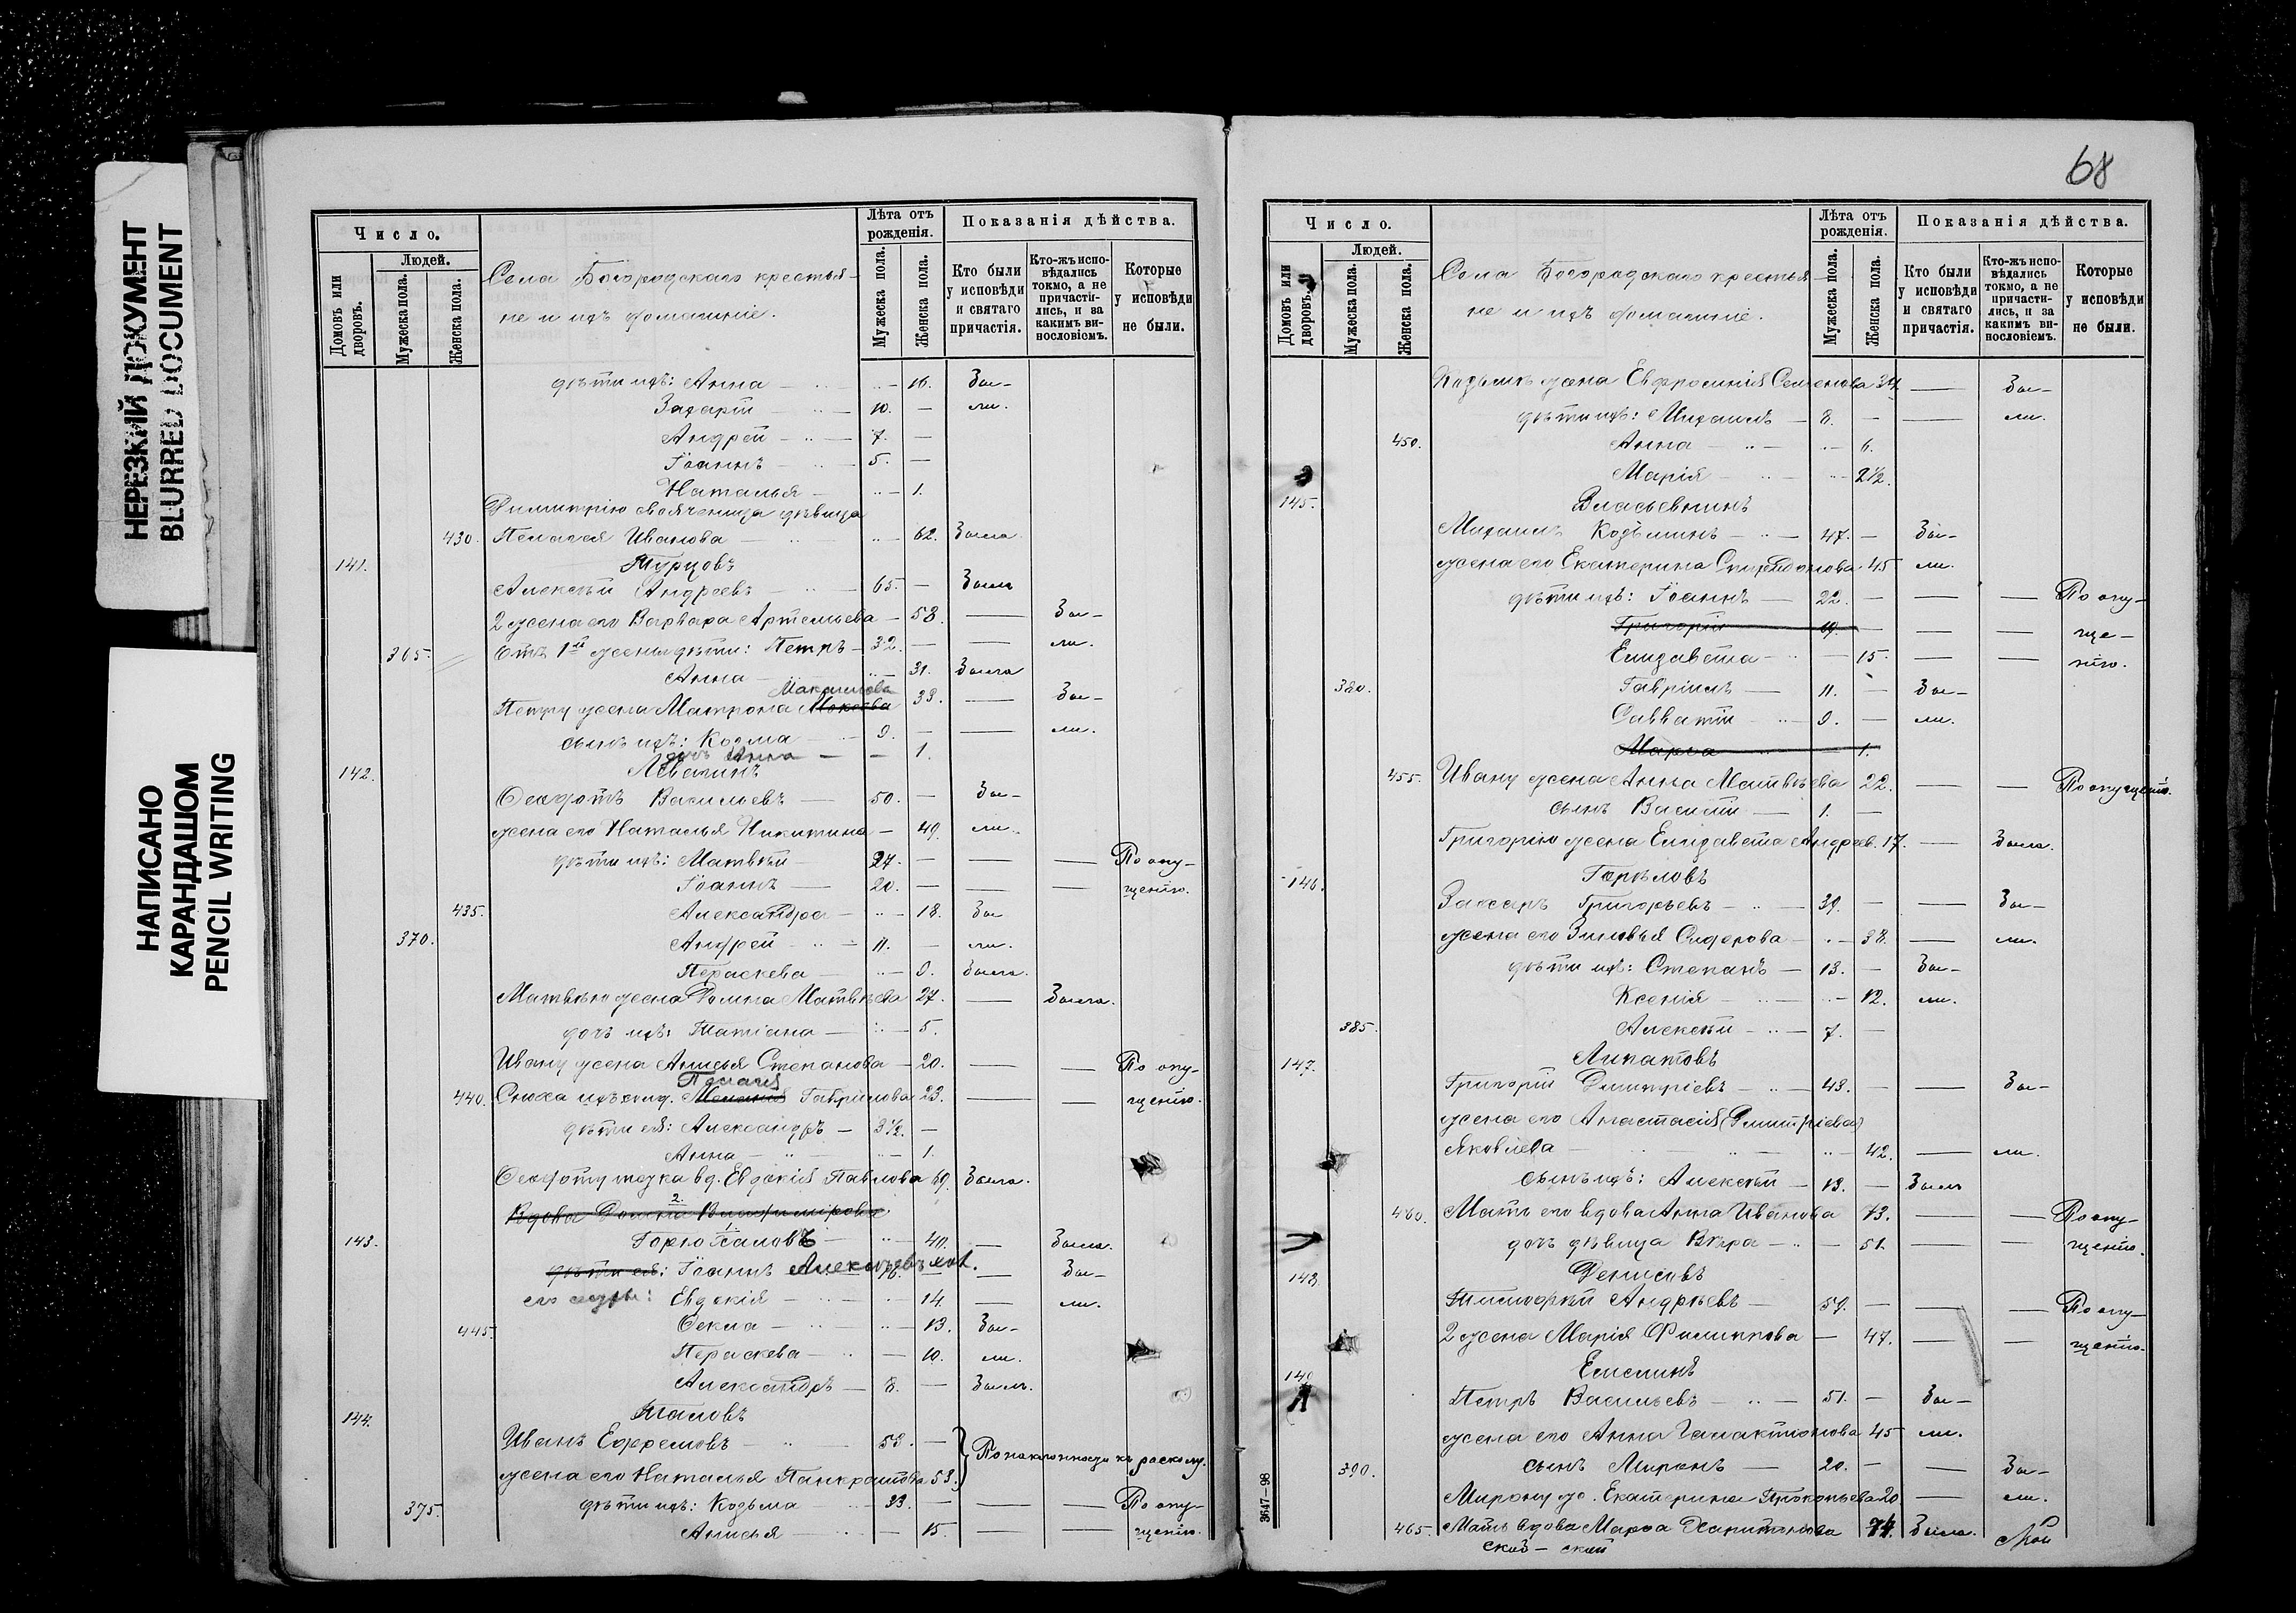 НЕРЕЗКИЙ ДОКУМЕНТ
BLURRED DOCUMENT
НАПИСАНО
КАРАНДАШОМ
PENCIL WRITING
Число.
Людей.
Домовъ или дворовъ.
Мужеска пола.
Женска пола.
Села Богородскаго крестья-
не и ихъ домашніе.
Лѣта отъ рожденія.
Мужеска пола.
Женска пола.
Показанія дѣйства.
Кто были у исповѣди и святаго причастія.
Кто-жъ исповѣдались токмо, а не причастились, и за какимъ винословіемъ.
Которые у исповѣди не были.
дѣти ихъ: Анна — 16. Бы-
Захарій — 10. — ли.
Андрей — 7. —
Іоаннъ — 5. —
Наталья — 1.
Димитрію своячница дѣвица
430. Пелагея Иванова — 62. Была
141. Турцовъ
Алексѣй Андреевъ — 65. — Былъ
2 жена его Варвара Артемьева — 58. — Бы-
365. Отъ 1й жены дѣти: Петръ — 32. — ли.
Анна — 31. Была
Максимова
Петру жена Матрона 33. — Бы-
сынъ ихъ: Козма — 9. — ли.
дочь Анна — 1.
142.
Ѳеодотъ Васильевъ — 50. — Бы-
жена его Наталья Никитина — 49. ли.
дѣти ихъ: Матвѣй — 27. — — По опу-
Іоаннъ — 20. — — щенію.
435. Александра — 18. Бы
370. Андрей — 11. — ли.
Параскева — 9. Была.
Матвѣю жена Домна Матвѣева 27. — Была.
дочь ихъ: Татіана — 5.
Ивану жена Анисья Степанова — 20. — — По опу-
Пелагея
440. Сноха ихъ солд. Гаврилова 23. — — щенію.
дѣти ея: Александръ — 3½. —
Анна — 1.
Ѳеодоту тетка вд. Евдокія Павлова 69. Была.
Вдова
143. Горюхаловъ — 40. — Была.
дѣти ея: Іоаннъ Алексѣевъ — Бы-
его сестры: Евдокія — 14. — ли.
445. Ѳекла — 13. Бы-
Параскева — 10. ли.
Александръ — 8. — Былъ.
144. Таловъ
Иванъ Ефремовъ — 53. —
По наклонности къ расколу.
жена его Наталья Панкратова 53.
375. дѣти ихъ: Козьма 23. — — — По опу-
Анисья — 15. — — щенію.
68
Число.
Людей.
Домовъ или дворовъ.
Мужеска пола.
Женска пола.
Села Богородскаго крестья-
не и ихъ домашніе.
Лѣта отъ рожденія.
Мужеска пола.
Женска пола.
Показанія дѣйства.
Кто были у исповѣди и святаго причастія.
Кто-жъ исповѣдались токмо, а не причастились, и за какимъ винословіемъ.
Которые у исповѣди не были.
жена Евфросинія Семенова — Бы-
дѣти ихъ: Михаилъ — 8. — — ли.
450. Анна — 6.
Марія — 2½.
145. Власьевнинъ
Михаилъ Козьминъ — 47. — Бы-
жена его Екатерина Спиридонова 45 ли.
дѣти ихъ: Іоаннъ — 22. — — — По опу-
Григорій 19. — — — ще-
Елизавета — 15. — — нію.
380. Гавріилъ — 11. — Бы-
Савватій — 9. — ли.
1.
455. Ивану жена Анна Матвѣева 22. — — По опущенію.
сынъ Василій — 1. —
Григорію жена Елизавета Андреев. 17. — Была.
146. Горѣловъ
Захаръ Григорьевъ — 39. — — Бы-
жена его Зиновья Сидорова — 38. — ли.
дѣти ихъ: Степанъ — 13. — Бы-
Ксенія — 12. ли.
385. Алексѣй — 7. —
147. Липатовъ
Григорій Димитріевъ — 43. — — Бы-
жена его Анастасія (Димитріева)
Яковлева — 42. — ли.
сынъ ихъ: Алексѣй — 13. — Былъ
460. Мать его вдова Анна Иванова 73. — — По опу-
дочь дѣвица Вѣра — 51. — — щенію.
148. Денисовъ
Тимофей Андреевъ — 59. — — — По опу-
2 жена Марія Филиппова — 47. — — щенію.
149 Емелинъ
Петръ Васильевъ — 51. — Бы-
жена его Анна Галактіонова 45 ли.
390. сынъ Миронъ — 20. — — Бы-
Мирону ж. Екатерина Прокопьева 20 — ли.
465. Мать вдова Марѳа Харитонова 74. Была.
3647—98